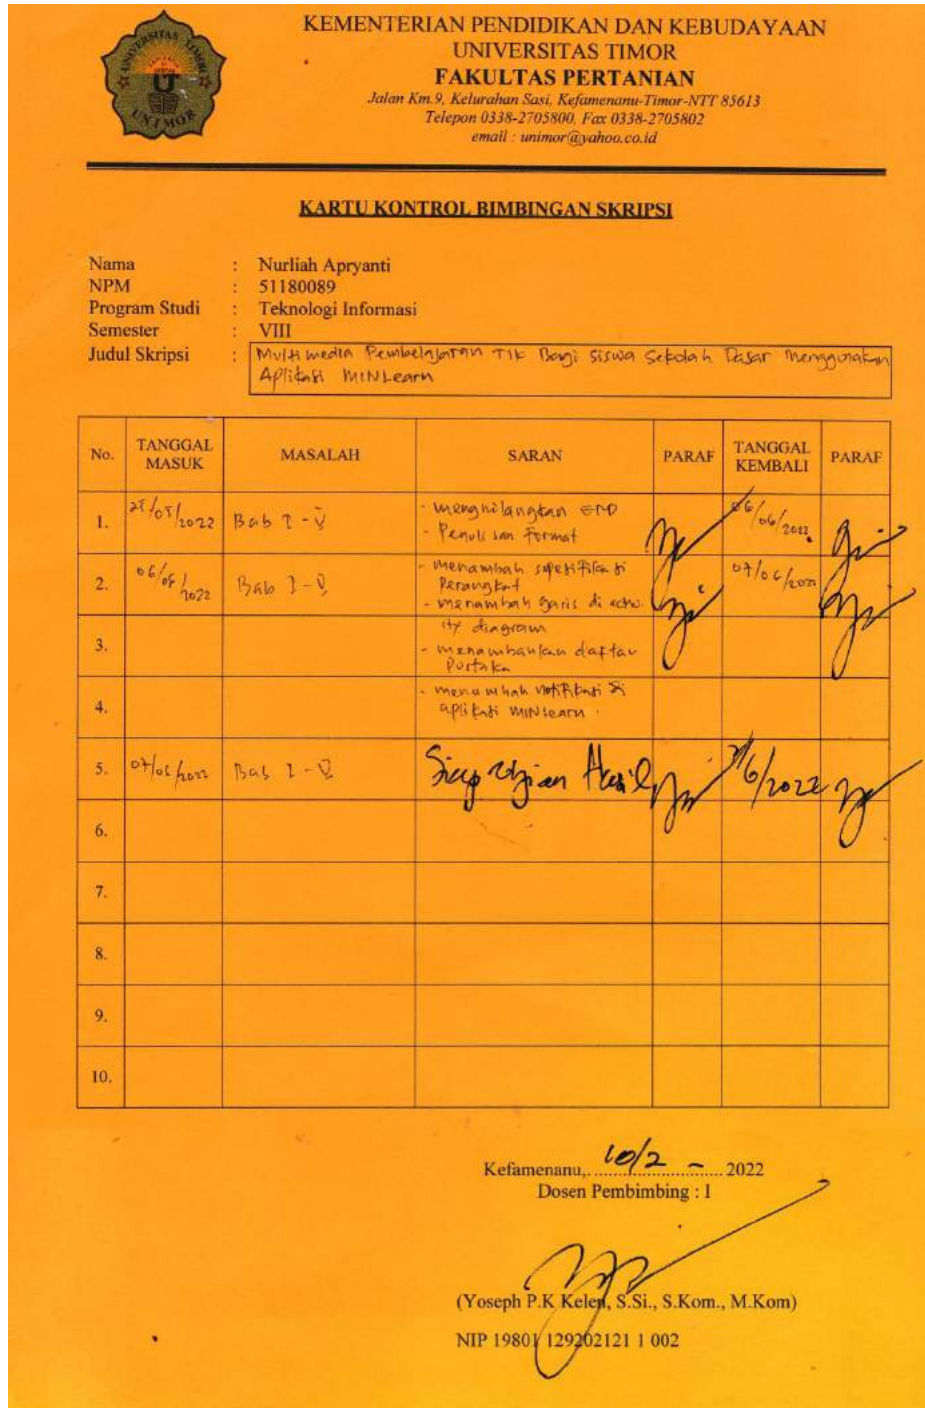 UNIVERSITAS TIMOR
UNIMOR
KEMENTERIAN PENDIDIKAN DAN KEBUDAYAAN
UNIVERSITAS TIMOR
FAKULTAS PERTANIAN
Jalan Km.9, Kelurahan Sasi, Kefamenanu-Timor-NTT 85613
Telepon 0338-2705800, Fax 0338-2705802
email : unimor@yahoo.co.id
KARTU KONTROL BIMBINGAN SKRIPSI
Nama : Nurliah Apryanti
NPM : 51180089
Program Studi : Teknologi Informasi
Semester : VIII
Judul Skripsi : Multimedia Pembelajaran TIK Bagi Siswa Sekolah Dasar Menggunakan
Aplikasi MINLearn
No. TANGGAL MASUK MASALAH SARAN PARAF TANGGAL KEMBALI PARAF
1. Bab I - V - menghilangkan ERD 06/06/2022
- Penulisan Format
2. Bab I - V - menambah spesifikasi 07/06/2022
Perangkat
- menambah garis di activ
ity diagram
3. - menambahkan daftar
Pustaka
4. - menambah notifikasi di
aplikasi MINLearn.
5. 07/06/2022 Bab I - V Siap Ujian Hasil /6/2022
6.
7.
8.
9.
10.
Kefamenanu, 10/2 - 2022
Dosen Pembimbing : I
(Yoseph P.K Kelen, S.Si., S.Kom., M.Kom)
NIP 19801 129202121 1 002